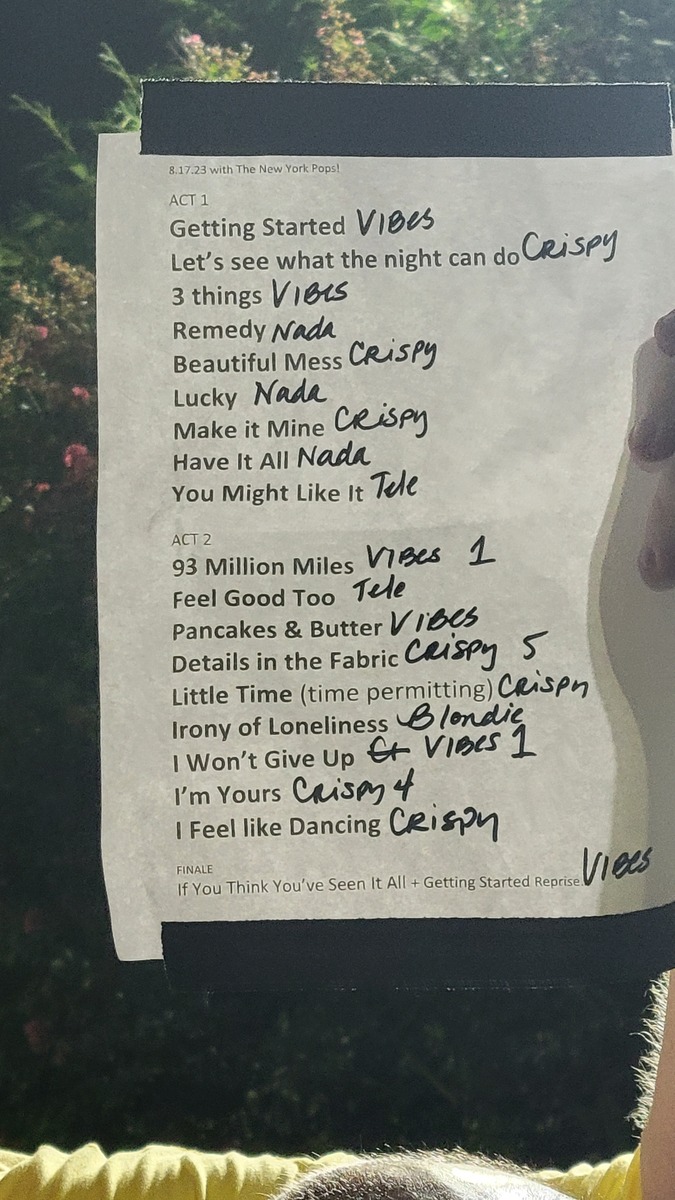 8.17.23 with The New York Pops!
ACT 1
Getting Started VIBES
Let's see what the night can do CRISPY
3 things VIBES
Remedy Nada
Beautiful Mess CRISPY
Lucky Nada
Make it Mine CRISPY
Have It All Nada
You Might Like It Tele
ACT 2
93 Million Miles VIBES 1
Feel Good Too Tele
Pancakes & Butter VIBES
Details in the Fabric CRISPY 5
Little Time (time permitting) CRISPY
Irony of Loneliness Blondie
I Won't Give Up VIBES 1
I'm Yours CRISPY 4
I Feel like Dancing CRISPY
FINALE
If You Think You've Seen It All + Getting Started Reprise. VIBES